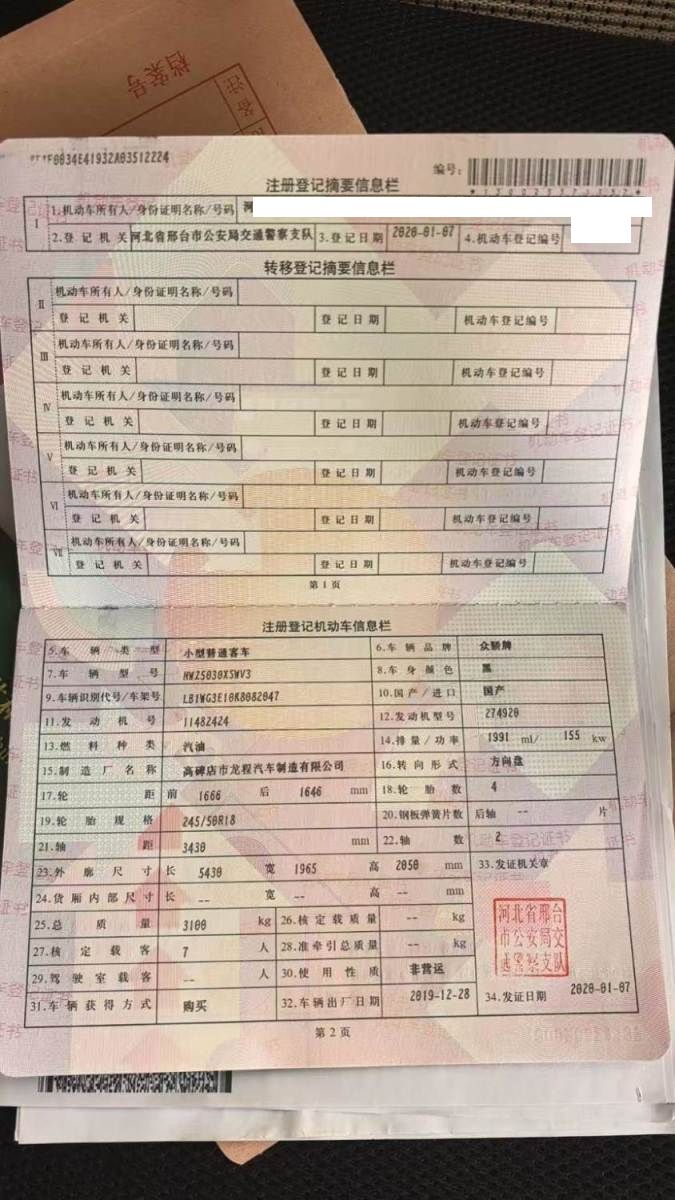 档案号
备注
编号:
注册登记摘要信息栏
I 1.机动车所有人/身份证明名称/号码 河
2.登记机关 河北省邢台市公安局交通警察支队 3.登记日期 2020-01-07 4.机动车登记编号
转移登记摘要信息栏
II 机动车所有人/身份证明名称/号码
登记机关 登记日期 机动车登记编号
III 机动车所有人/身份证明名称/号码
登记机关 登记日期 机动车登记编号
IV 机动车所有人/身份证明名称/号码
登记机关 登记日期 机动车登记编号
V 机动车所有人/身份证明名称/号码
登记机关 登记日期 机动车登记编号
VI 机动车所有人/身份证明名称/号码
登记机关 登记日期 机动车登记编号
VII 机动车所有人/身份证明名称/号码
登记机关 登记日期 机动车登记编号
第1页
注册登记机动车信息栏
5.车辆类型 小型普通客车 6.车辆品牌 众骄牌
7.车辆型号 HWZ5030XSWV3 8.车身颜色 黑
9.车辆识别代号/车架号 LB1WG3E10K8082047 10.国产/进口 国产
11.发动机号 11482424 12.发动机型号 274920
13.燃料种类 汽油 14.排量/功率 1991 ml/ 155 kw
15.制造厂名称 高碑店市龙程汽车制造有限公司 16.转向形式 方向盘
17.轮距 前 1666 后 1646 mm 18.轮胎数 4
19.轮胎规格 245/50R18 20.钢板弹簧片数 后轴 -- 片
21.轴距 3430 mm 22.轴数 2
23.外廓尺寸 长 5430 宽 1965 高 2050 mm 33.发证机关章
24.货厢内部尺寸 长 -- 宽 -- 高 -- mm
25.总质量 3100 kg 26.核定载质量 -- kg
27.核定载客 7 人 28.准牵引总质量 -- kg
29.驾驶室载客 -- 人 30.使用性质 非营运
31.车辆获得方式 购买 32.车辆出厂日期 2019-12-28 34.发证日期 2020-01-07
河北省邢台
市公安局交
通警察支队
第2页